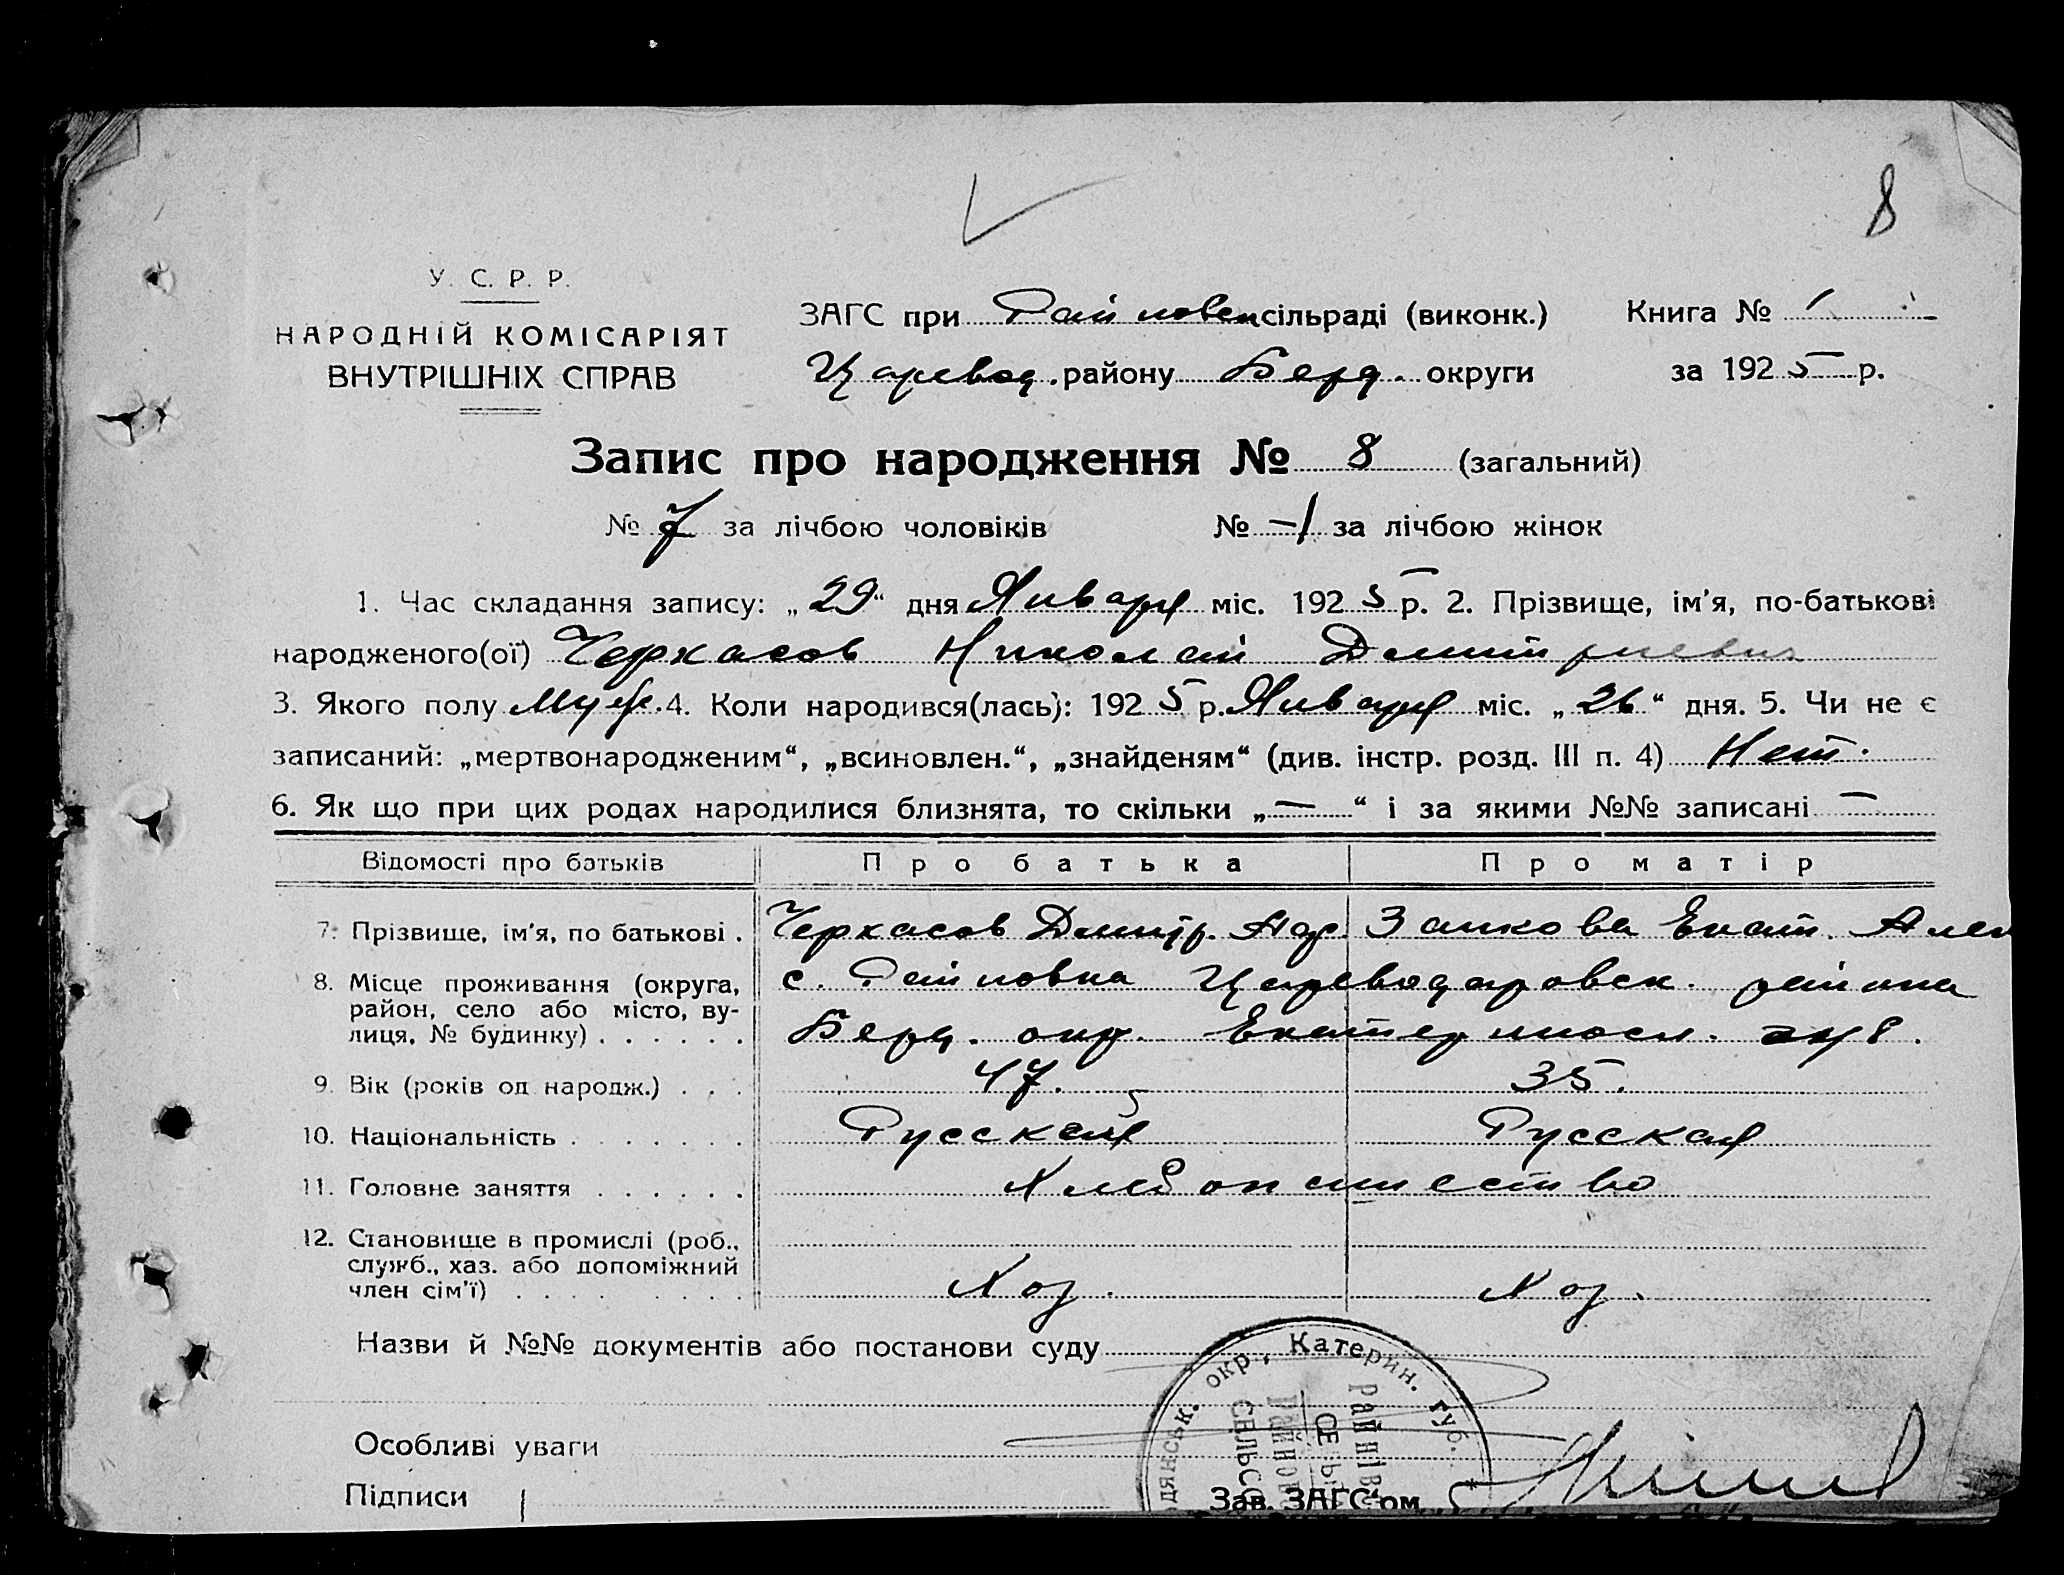 8
У. С. Р. Р.
НАРОДНІЙ КОМІСАРІЯТ
ВНУТРІШНІХ СПРАВ
ЗАГС при Райновск сільраді (виконк.)
Царевод. району Берд. округи
Книга № 1
за 1925 р.
Запис про народження № 8 (загальний)
№ 7 за лічбою чоловіків № — за лічбою жінок
1. Час складання запису: „29“ дня Января міс. 1925 р. 2. Прізвище, ім’я, по-батькові
народженого(ої) Черкасов Николай Дмитриевич
3. Якого полу Муж. 4. Коли народився(лась): 1925 р. Января міс. „26“ дня. 5. Чи не є
записаний: „мертвонародженим“, „всиновлен.“, „знайденям“ (див. інстр. розд. III п. 4) Нет.
6. Як що при цих родах народилися близнята, то скільки „—“ і за якими №№ записані —
Відомості про батьків Про батька Про матір
7. Прізвище, ім’я, по батькові . Черкасов Дмитр. Заикова Екат. Алек
8. Місце проживання (округа, с. Райновка Цареводаровск. района
район, село або місто, ву-
лиця, № будинку) . . . . . . Берд. окр. Екатериносл. губ.
9. Вік (років од народж.) . . . 47. 35.
10. Національність . . . . . . . Русской Русская
11. Головне заняття . . . . . . Хлебопашество
12. Становище в промислі (роб.,
служб., хаз. або допоміжний
член сім’ї) . . . . . . . . Хоз. Хоз.
Назви й №№ документів або постанови суду
Особливі уваги
Підписи
Зав. ЗАГС’ом
дянськ. окр., Катерин. губ. *